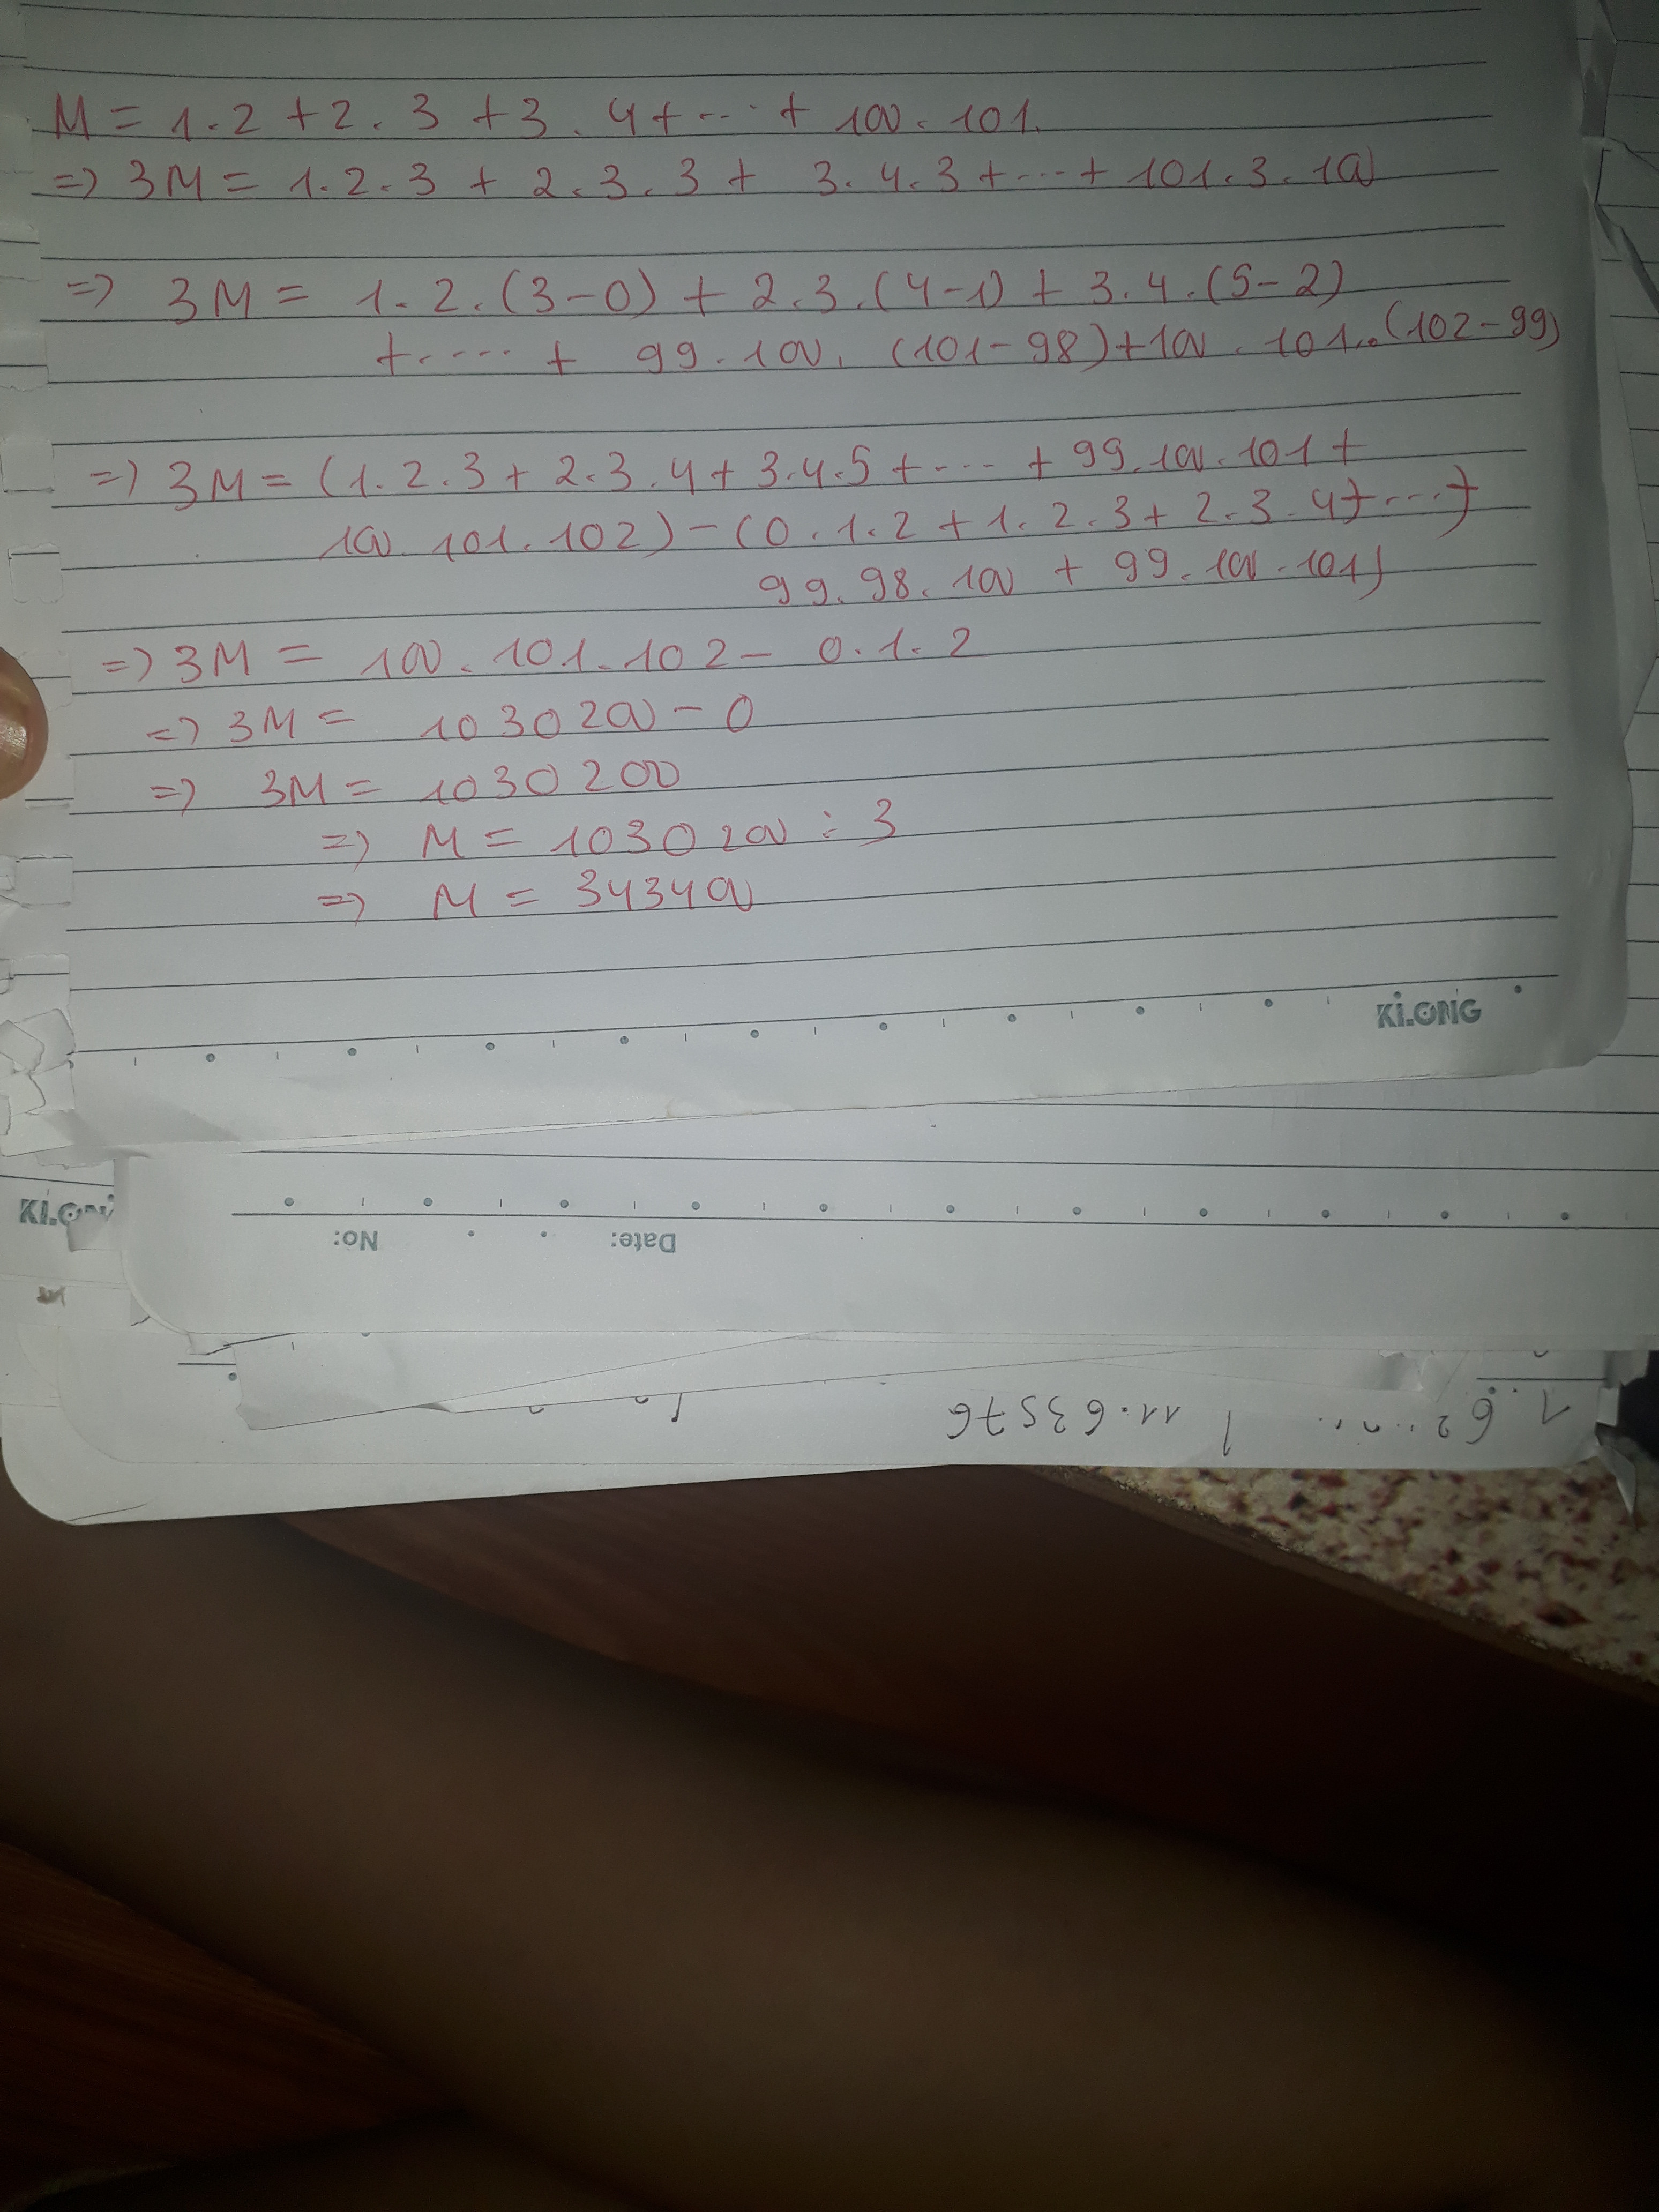 M = 1.2 + 2.3 + 3.4 + ... + 100.101.
=> 3M = 1.2.3 + 2.3.3 + 3.4.3 + ... + 101.3.100
=> 3M = 1.2.(3-0) + 2.3.(4-1) + 3.4.(5-2)
+ .... + 99.100.(101-98) + 100.101.(102-99)
=> 3M = (1.2.3 + 2.3.4 + 3.4.5 + ... + 99.100.101 +
100.101.102) - (0.1.2 + 1.2.3 + 2.3.4 + ... +
99.98.100 + 99.100.101)
=> 3M = 100.101.102 - 0.1.2
=> 3M = 1030200 - 0
=> 3M = 1030200
=> M = 1030200 : 3
=> M = 343400
KLONG
KLONG
No:
Date:
11.63576